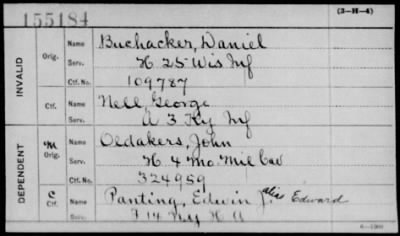 155184
(3-H-4)
Name Buchacker, Daniel
INVALID Orig. Serv. H 25 Wis Inf
Ctf. No. 109787
Name Nell, George
Ctf. Serv. A 3 Ky Inf
Name Oldakers, John
DEPENDENT M Orig. Serv. H 4 Mo. Mil Cav
Ctf. No. 324959
C Ctf. Name Panting, Edwin J. alias Edward
Serv. F 14 N.Y. H A